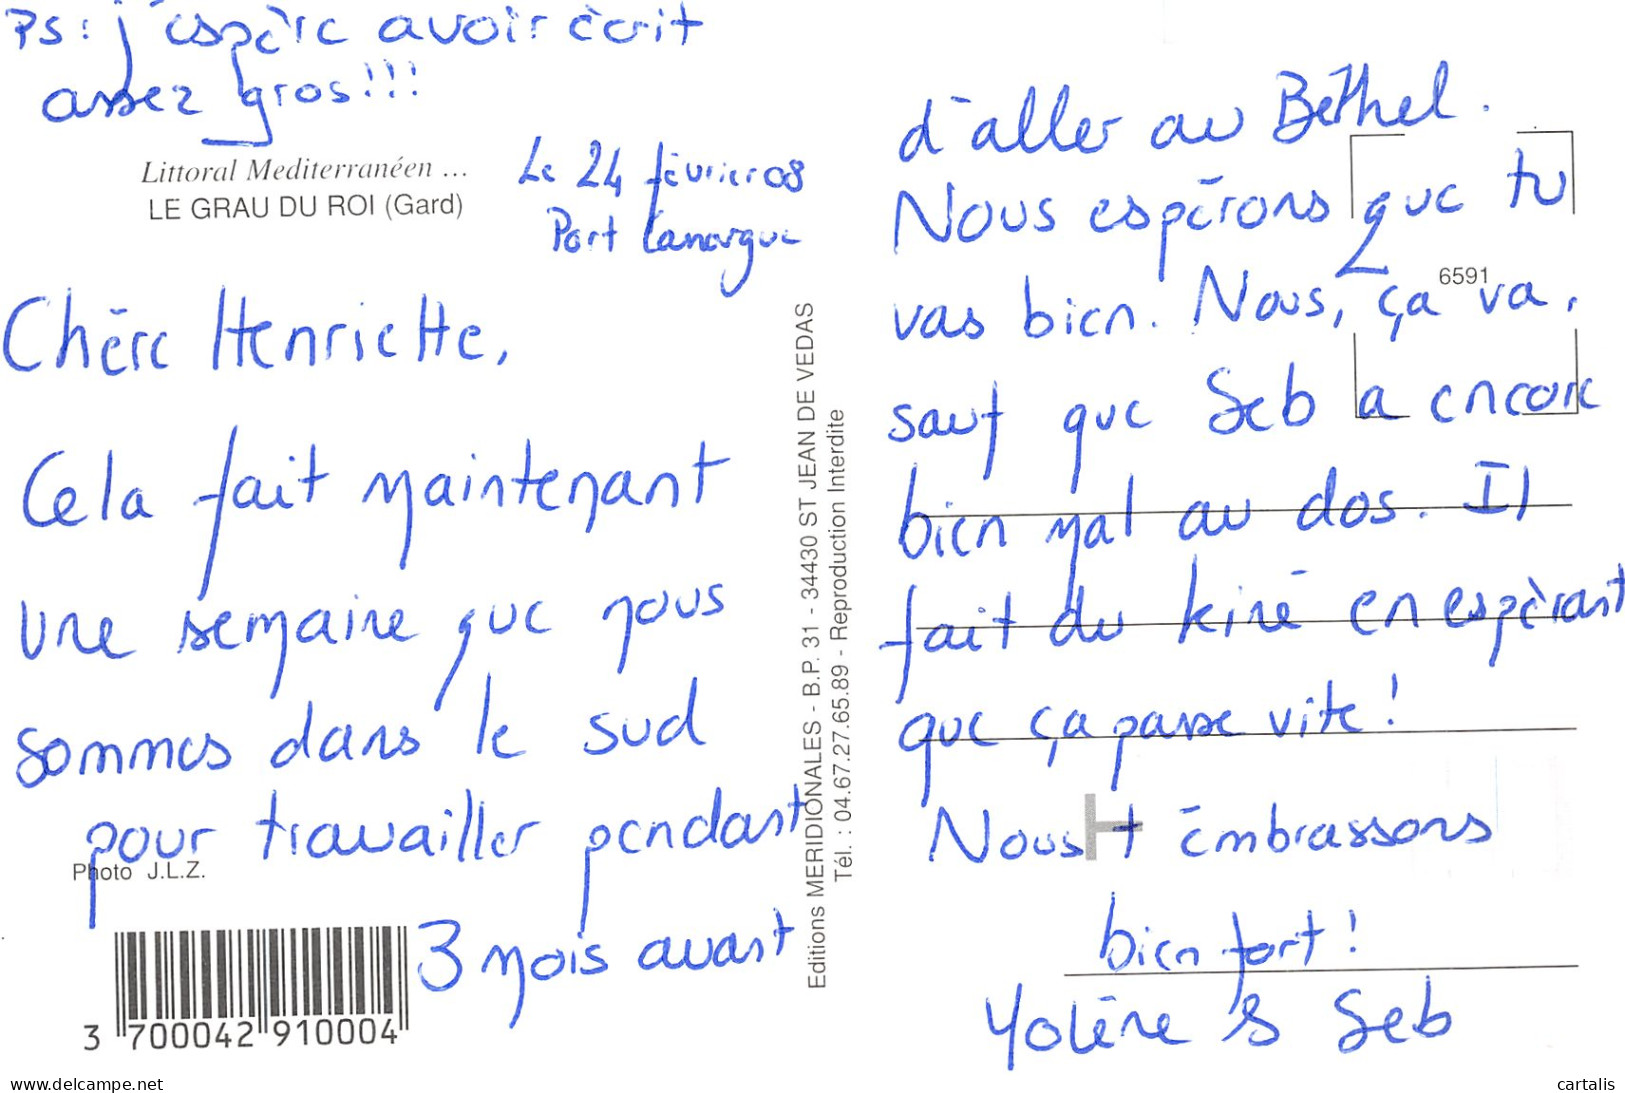 Ps: j'espère avoir écrit
assez gros!!!
Littoral Mediterranéen ...
LE GRAU DU ROI (Gard)
Le 24 février 08
Port Camargue
Chère Henriette,
Cela fait maintenant
une semaine que nous
sommes dans le sud
pour travailler pendant
Photo J.L.Z.
3 mois avant
3 700042 910004
Editions MERIDIONALES - B.P. 31 - 34430 ST JEAN DE VEDAS
Tél. : 04.67.27.65.89 - Reproduction Interdite
d'aller au Béthel.
Nous espérons que tu
6591
vas bien. Nous, ça va,
sauf que Seb a encore
bien mal au dos. Il
fait du kiné en espérant
que ça passe vite!
Nous t'embrassons
bien fort!
Yolène & Seb
www.delcampe.net
cartalis